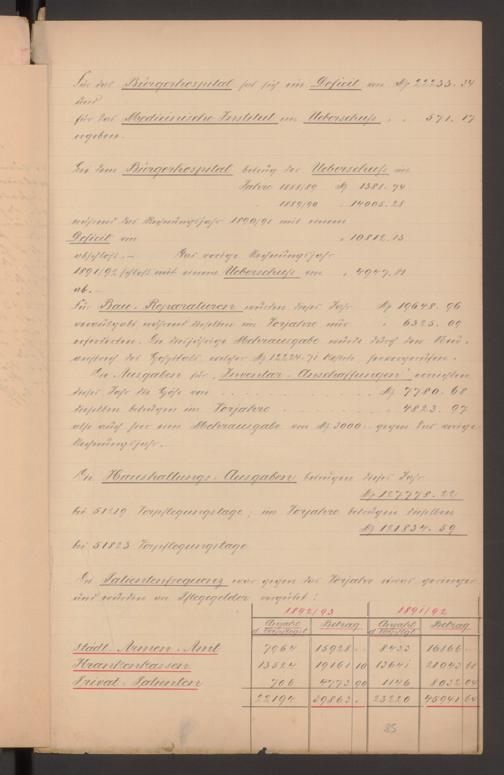 Für das Bürgerhospital hat sich ein Deficit von M 22233.34
und
für das Medicinische Institut ein Ueberschuß „ „ 571.17
ergeben.
Bei dem Bürgerhospital betrug der Ueberschuß im
Jahre 1888/89 M 1381.74
1889/90 „ 14005.28
während das Rechnungsjahr 1890/91 mit einem
Deficit von „ 10812.13
abschloß. — Das vorige Rechnungsjahr
1891/92 schloß mit einem Ueberschuß von „ 4947.81
ab. —
Für Bau-Reparaturen wurden dieses Jahr M 19648.96
verausgabt während dieselben im Vorjahre nur „ 6325.09
erforderten. Die diesjährige Mehrausgabe wurde durch den
des Hospitals, welcher M 12224.71 kostete, hervorgerufen.
Die Ausgaben für „Inventar-Anschaffungen" erreichten
dieses Jahr die Höhe von M 7780.68
dieselben betrugen im Vorjahre „ 4823.97
also auch hier eine Mehrausgabe von M 3000.- gegen das vorige
Rechnungsjahr.
Die Haushaltungs-Ausgaben betrugen dieses Jahr
M 127778.22
bei 51219 Verpflegungstage; im Vorjahre betrugen dieselben
M 121834.59
bei 51823 Verpflegungstage
Die Patientenfrequenz war gegen das Vorjahr etwas geringer
und wurden an Pflegegelder vergütet:
1892/93 1891/92
Anzahl d. Verpflegt. Betrag Anzahl d. Verpflgt. Betrag
Städt. Armen-Amt 7964 15928 - 8433 16866 -
Krankenkassen 13524 19161 10 13641 21043 60
Privat-Patienten 706 4773 90 1146 8032 04
22194 39863 - 23220 45941 64
85